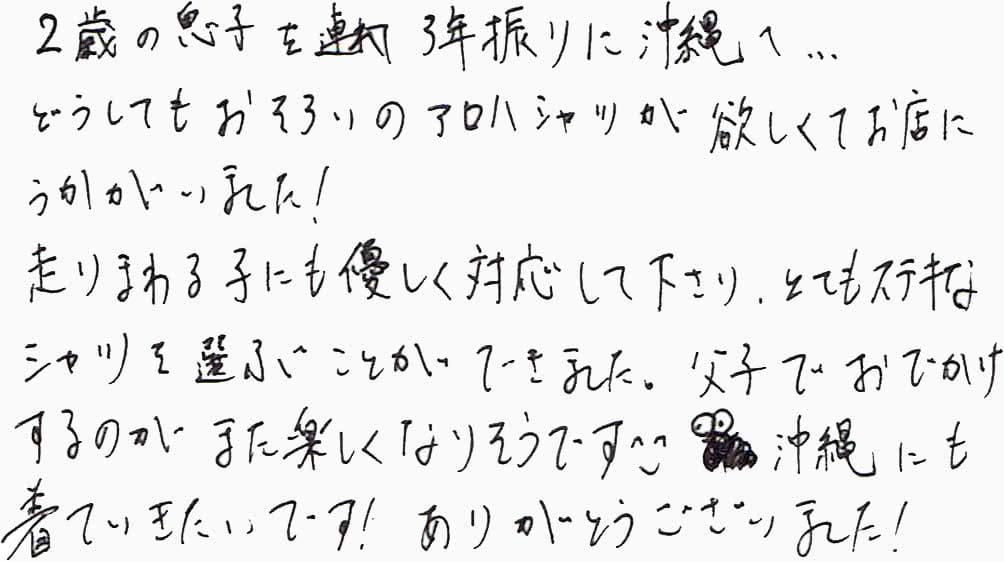 2歳の息子を連れ 3年振りに沖縄へ...
どうしてもおそろいのアロハシャツが欲しくてお店に
うかがいました!
走りまわる子にも優しく対応して下さり、とてもステキな
シャツを選ぶことができました。父子でおでかけ
するのがまた楽しくなりそうです^^ 沖縄にも
着ていきたいです! ありがとうございました!